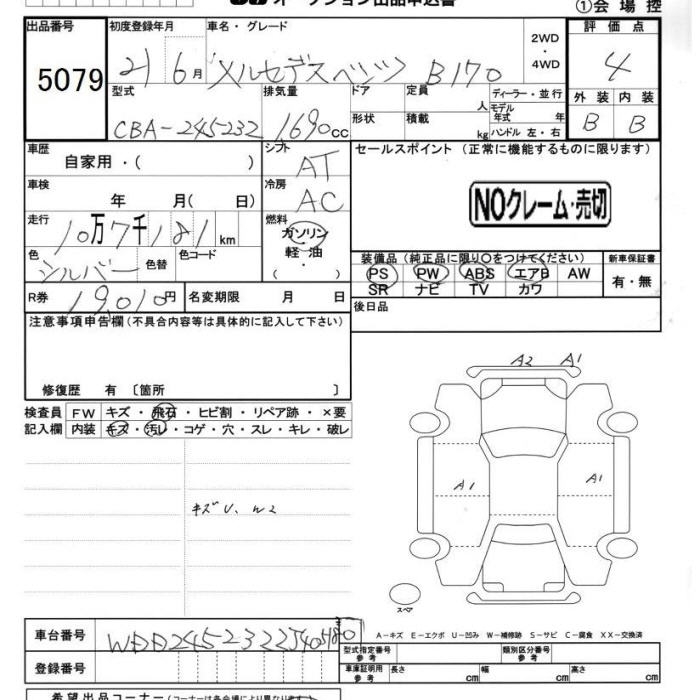 オークション出品申込書 ①会場控
出品番号 初度登録年月 車名・グレード 2WD・4WD 評価点
5079 21 6月 メルセデスベンツ B170 4
型式 排気量 ドア 定員 人 ディーラー・並行 外装 内装
CBA-245232 1690cc 形状 積載 kg モデル年式 年 ハンドル 左・右 B B
車歴 自家用・( ) シフト AT セールスポイント (正常に機能するものに限ります)
車検 年 月( 日) 冷房 AC NOクレーム・売切
走行 10万7千181km 燃料 ガソリン
軽油
・( )
色 シルバー 色替 色コード 装備品 (純正品に限り○をつけてください) 新車保証書
PS PW ABS エアB AW 有・無
SR ナビ TV カワ
R券 19,010円 名変期限 月 日 後日品
注意事項申告欄 (不具合内容等は具体的に記入して下さい)
修復歴 有 〔箇所 〕
検査員 FW キズ・飛石・ヒビ割・リペア跡・×要
記入欄 内装 キズ・汚レ・コゲ・穴・スレ・キレ・破レ
A2 A1
A1 A1
キズU、W2
スペア
車台番号
A-キズ E-エクボ U-凹み W-補修跡 S-サビ C-腐食 XX-交換済
登録番号 型式指定番号 参考 類別区分番号 参考
車庫証明用 参考 長さ cm 幅 cm 高さ cm
希望出品コーナー